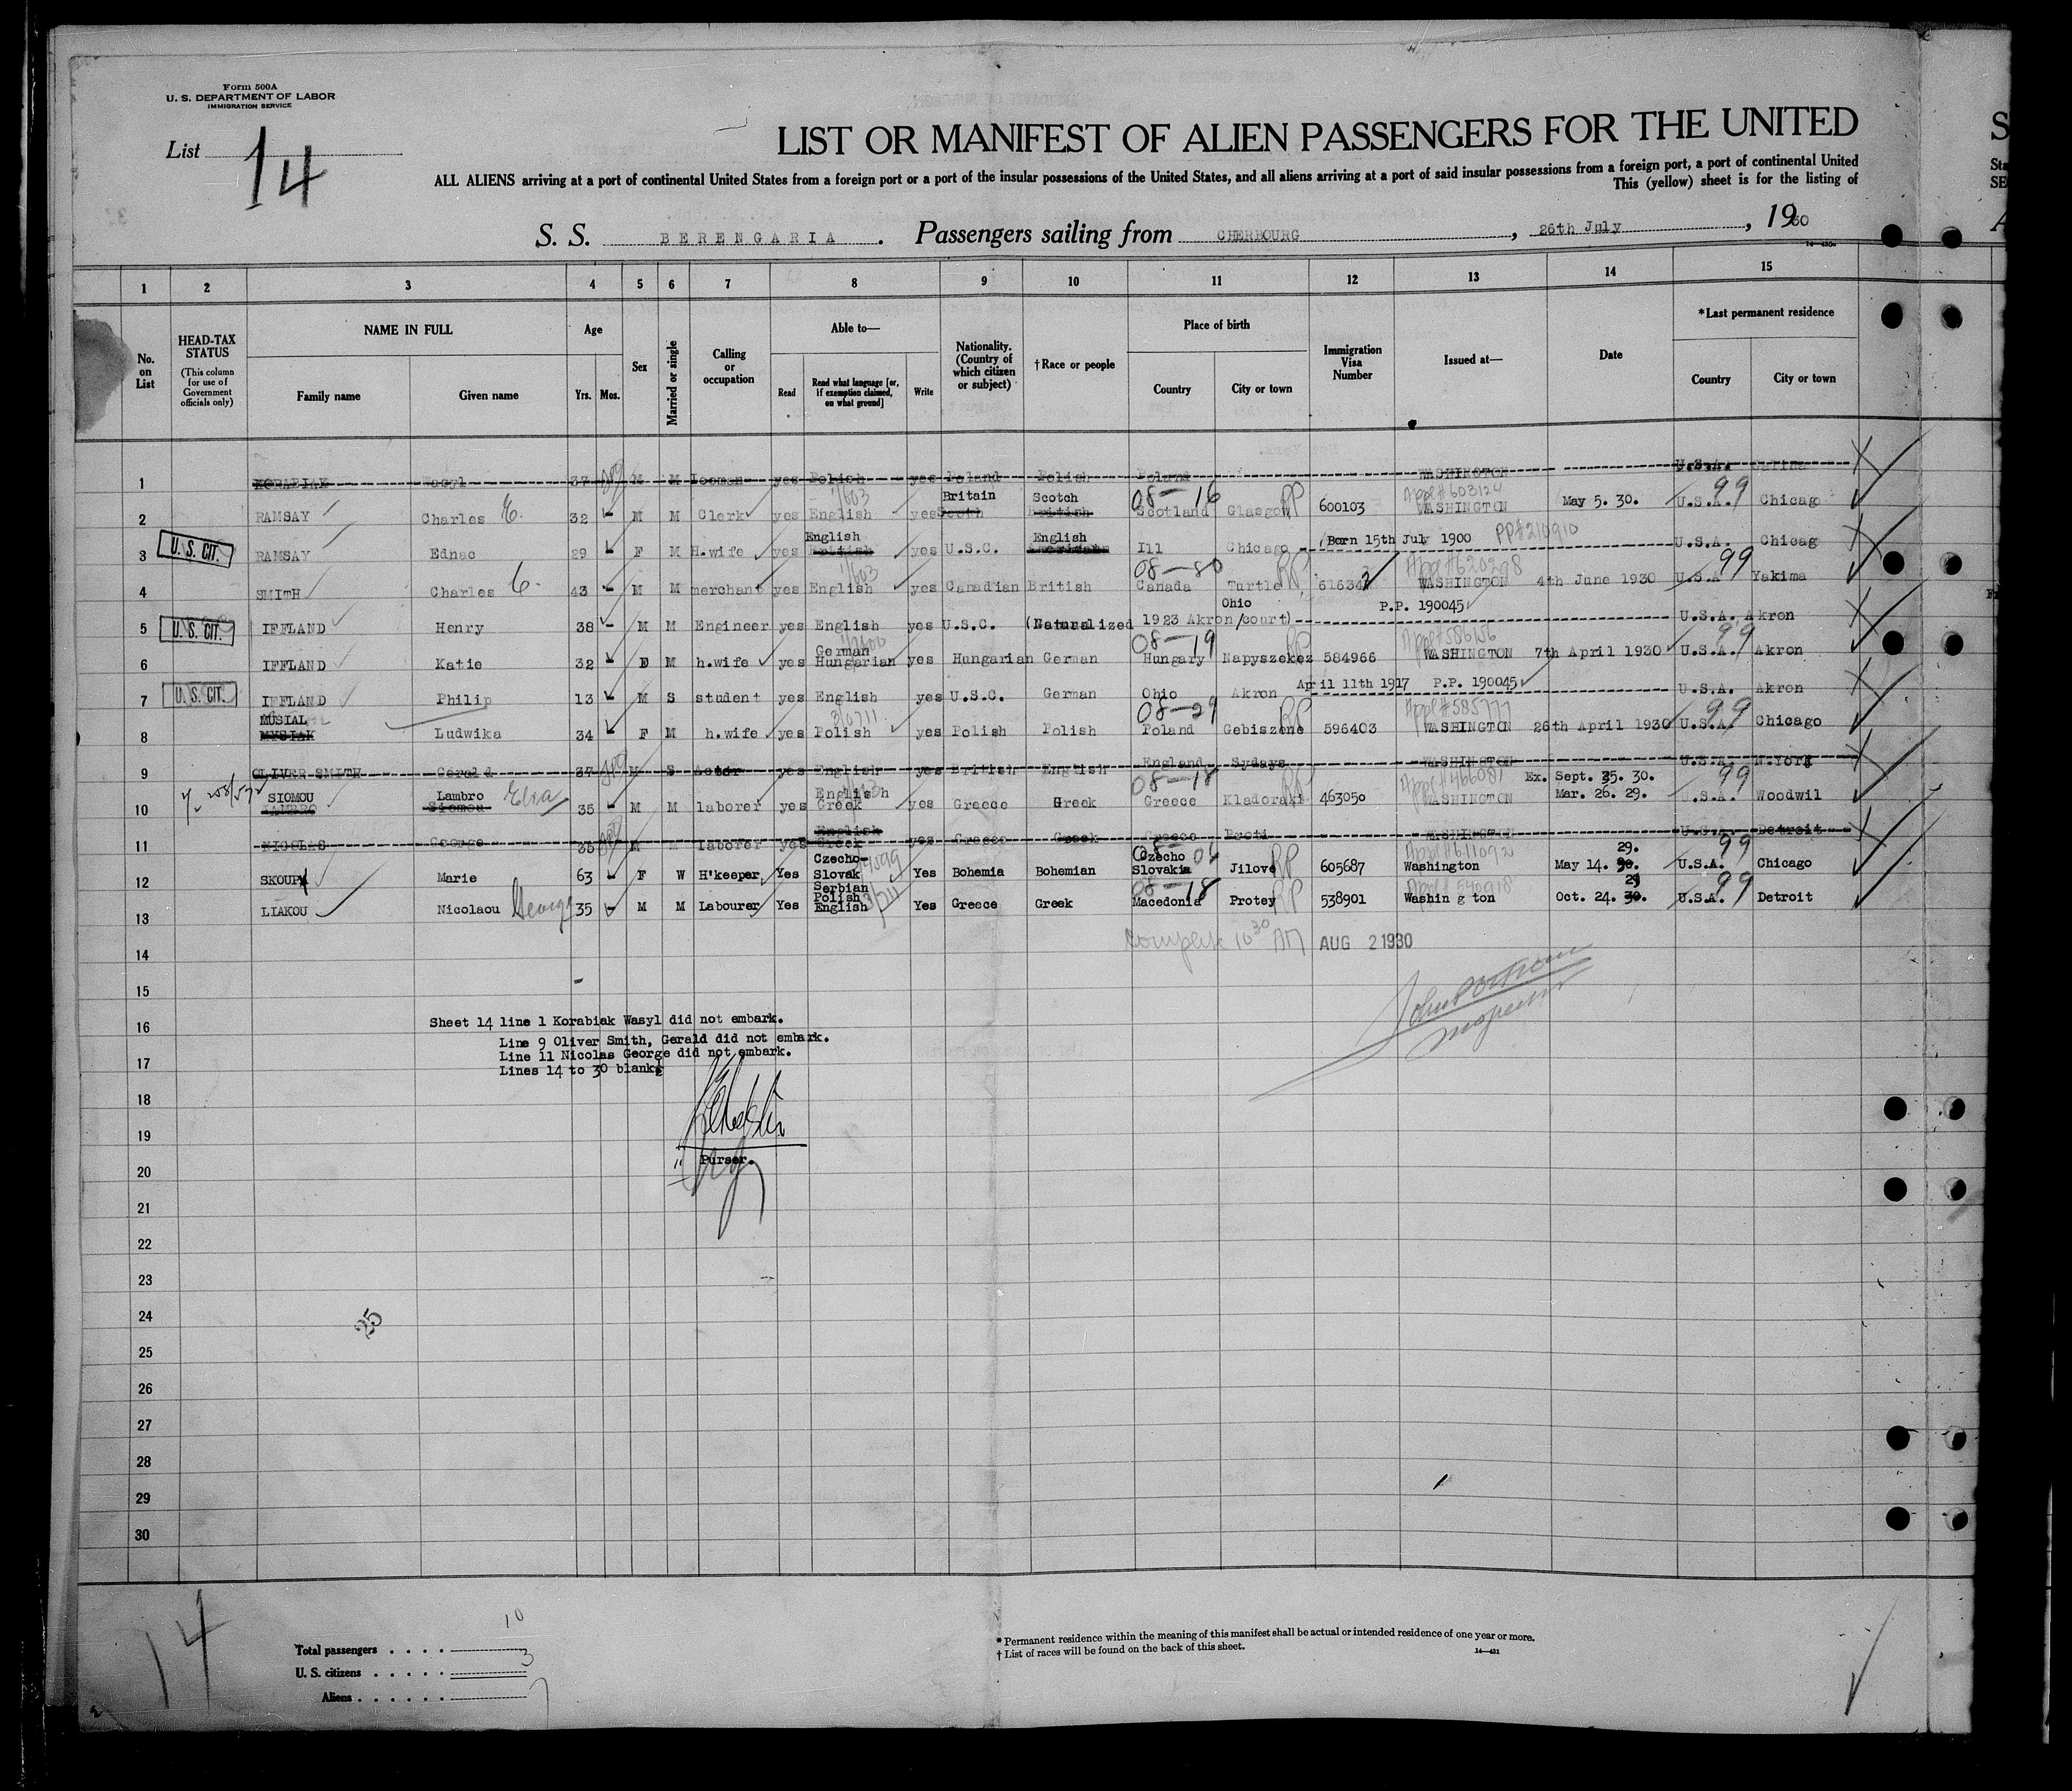 Form 500A
U. S. DEPARTMENT OF LABOR
IMMIGRATION SERVICE
List 14
LIST OR MANIFEST OF ALIEN PASSENGERS FOR THE UNITED
ALL ALIENS arriving at a port of continental United States from a foreign port or a port of the insular possessions of the United States, and all aliens arriving at a port of said insular possessions from a foreign port, a port of continental United
This (yellow) sheet is for the listing of
S. S. BERENGARIA. Passengers sailing from CHERBOURG, 26th July, 1930
1 2 3 4 5 6 7 8 9 10 11 12 13 14 15
No. on List
HEAD-TAX STATUS
(This column for use of Government officials only)
NAME IN FULL
Family name Given name
Age
Yrs. Mos.
Sex
Married or single
Calling or occupation
Able to—
Read Read what language [or, if exemption claimed, on what ground] Write
Nationality. (Country of which citizen or subject)
†Race or people
Place of birth
Country City or town
Immigration Visa Number
Issued at—
Date
*Last permanent residence
Country City or town
1 KORABIAK Wasyl 37 M M yes Polish yes Poland Polish Poland WASHINGTON U.S.A.
1/603 Britain Scotch 08-16 99
2 RAMSAY Charles E. 32 - M M Clerk yes English yes Scotland Glasgow RP 600103 Appl# 603124 WASHINGTON May 5. 30. U.S.A. Chicag
U.S. CIT.
English English
3 RAMSAY Ednac 29 - F M H.wife yes British yes U.S.C. Ill Chicago (Born 15th July 1900 PP#210910 U.S.A. Chicag
1/603 08-80 99
4 SMITH Charles C. 43 - M M merchant yes English yes Canadian British Canada Turtle RP 616342 Appl#620298 WASHINGTON 4th June 1930 U.S.A Yakima
U.S. CIT.
Ohio P.P. 190045
5 IFFLAND Henry 38 - M M Engineer yes English yes U.S.C. (Naturalized 1923 Akron/court) U.S.A. Akron
German 08-19 99
6 IFFLAND Katie 32 - F M h.wife yes Hungarian yes Hungarian German Hungary Napyszekez RP 584966 Appl#586156 WASHINGTON 7th April 1930 U.S.A. Akron
U.S. CIT.
April 11th 1917 P.P. 190045
7 IFFLAND Philip 13 - M S student yes English yes U.S.C. German Ohio Akron U.S.A. Akron
MUSIAL 08-29 99
8 MYSIAK Ludwika 34 F M h.wife yes Polish yes Polish Polish Poland Gebiszene RP 596403 Appl#585777 WASHINGTON 26th April 1930 U.S.A. Chicago
9 OLIVER SMITH Gerald 37 M S Actor yes English yes British English England Sydays WASHINGTON U.S.A. N.York
SIOMOU Lambro English 08-18 Ex. Sept. 25. 30. 99
10 LAMBRO Siomou 35 - M M laborer yes Greek yes Greece Greek Greece Kladoraki 463050 Appl#466081 WASHINGTON Mar. 26. 29. U.S.A. Woodwil
English
11 NICOLAS George 35 M M laborer yes Greek yes Greece Greek Greece Proti WASHINGTON U.S.A. Detroit
Czecho- Czecho 29. 99
12 SKOUPY Marie 63 - F W H'keeper Yes Slovak Yes Bohemia Bohemian Slovakia Jilove RP 605687 Washington May 14. 30. U.S.A. Chicago
Serbian Polish 08-18 29 99
13 LIAKOU Nicolaou George 35 - M M Labourer Yes English Yes Greece Greek Macedonia Protey RP 538901 Appl# 540918 Washin g ton Oct. 24. 30. U.S.A. Detroit
14 Complete 10 30 AM AUG 2 1930
15
16
17
Sheet 14 line 1 Korabiak Wasyl did not embark.
Line 9 Oliver Smith, Gerald did not embark.
Line 11 Nicolas George did not embark.
Lines 14 to 30 blank
Inspector
18
19
Purser.
20
21
22
23
24
25
25
26
27
28
29
30
14
Total passengers 10
U. S. citizens 3
Aliens 7
* Permanent residence within the meaning of this manifest shall be actual or intended residence of one year or more.
† List of races will be found on the back of this sheet.
14—431